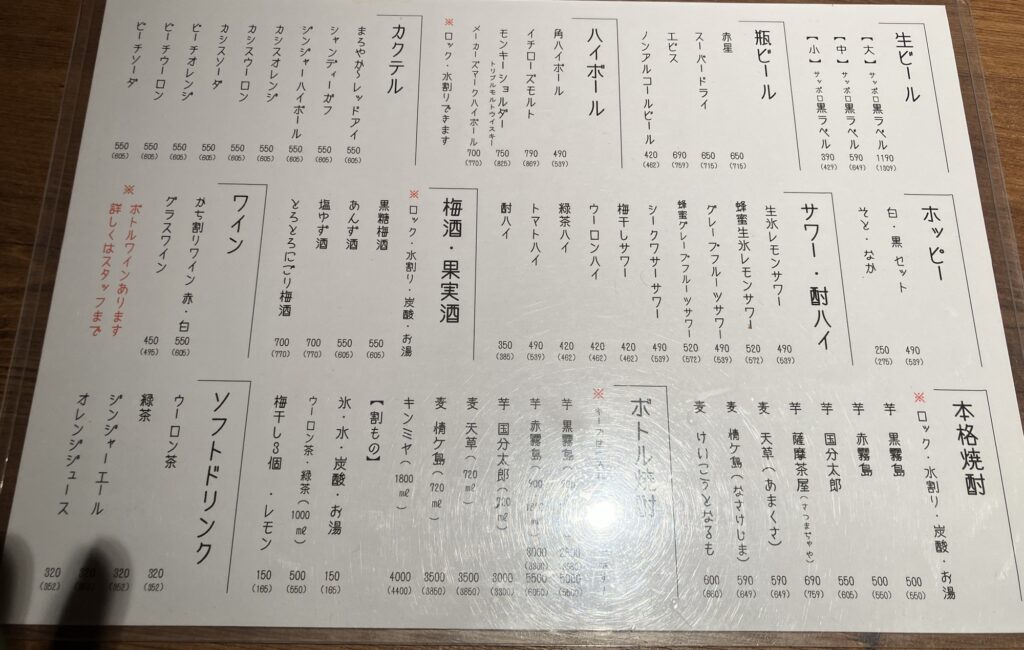 生ビール
【大】サッポロ黒ラベル 1190 (1309)
【中】サッポロ黒ラベル 590 (649)
【小】サッポロ黒ラベル 390 (429)
瓶ビール
赤星 650 (715)
スーパードライ 650 (715)
エビス 690 (759)
ノンアルコールビール 420 (462)
ハイボール
角ハイボール 490 (539)
イチローズモルト 790 (869)
モンキーショルダー 750 (825)
トリプルモルトウイスキー
メーカーズマークハイボール 700 (770)
※ロック・水割りできます
カクテル
まろやか〜レッドアイ 550 (605)
シャンディーガフ 550 (605)
ジンジャーハイボール 550 (605)
カシスオレンジ 550 (605)
カシスウーロン 550 (605)
カシスソーダ 550 (605)
ピーチオレンジ 550 (605)
ピーチウーロン 550 (605)
ピーチソーダ 550 (605)
ホッピー
白・黒 セット 490 (539)
そと・なか 250 (275)
サワー・酎ハイ
生氷レモンサワー 490 (539)
蜂蜜生氷レモンサワー 520 (572)
グレープフルーツサワー 490 (539)
蜂蜜グレープフルーツサワー 520 (572)
シークワサーサワー 490 (539)
梅干しサワー 420 (462)
ウーロンハイ 420 (462)
緑茶ハイ 420 (462)
トマトハイ 490 (539)
酎ハイ 350 (385)
梅酒・果実酒
※ロック・水割り・炭酸・お湯
黒糖梅酒 550 (605)
あんず酒 550 (605)
塩ゆず酒 700 (770)
とろとろにごり梅酒 700 (770)
ワイン
かち割りワイン 赤・白 550 (605)
グラスワイン 450 (495)
※ボトルワインあります
詳しくはスタッフまで
本格焼酎
※ロック・水割り・炭酸・お湯
芋 黒霧島 500 (550)
芋 赤霧島 500 (550)
芋 国分太郎 550 (605)
芋 薩摩茶屋(さつまぢゃや) 690 (759)
麦 天草(あまくさ) 590 (649)
麦 情ケ島(なさけじま) 590 (649)
麦 けいこうとなるも 600 (660)
ボトル焼酎
芋 黒霧島
芋 赤霧島 (900
3000 (3300)
5500 (6050)
芋 国分太郎 3000 (3300)
麦 天草(720㎖) 3500 (3850)
麦 情ケ島(720㎖) 3500 (3850)
キンミヤ(1800㎖) 4000 (4400)
【割もの】
氷・水・炭酸・お湯 150 (165)
ウーロン茶・緑茶(1000㎖) 500 (550)
梅干し3個・レモン 150 (165)
ソフトドリンク
ウーロン茶 320 (352)
緑茶 320 (352)
ジンジャーエール 320 (352)
オレンジ・ジュース 320 (352)